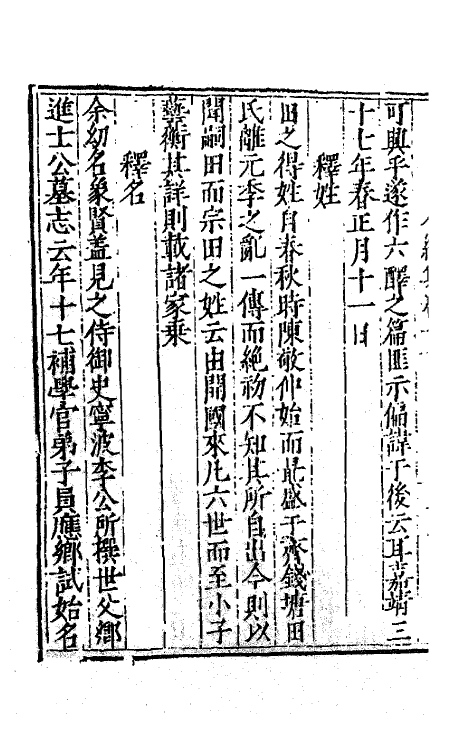 可興乎遂作六釋之篇匪示偏諱于後云耳嘉靖三
十七年春正月十一日
釋姓
田之得姓自春秋時陳敬仲始而最盛于齊錢塘田
氏離元季之亂一傳而絕初不知其所自出今則以
聞嗣田而宗田之姓云由開國來凡六世而至小子
藝衡其詳則載諸家乘
釋名
余幼名象賢蓋見之侍御史寧波李公所撰世父鄉
進士公墓志云年十七補學官弟子員應鄉試始名